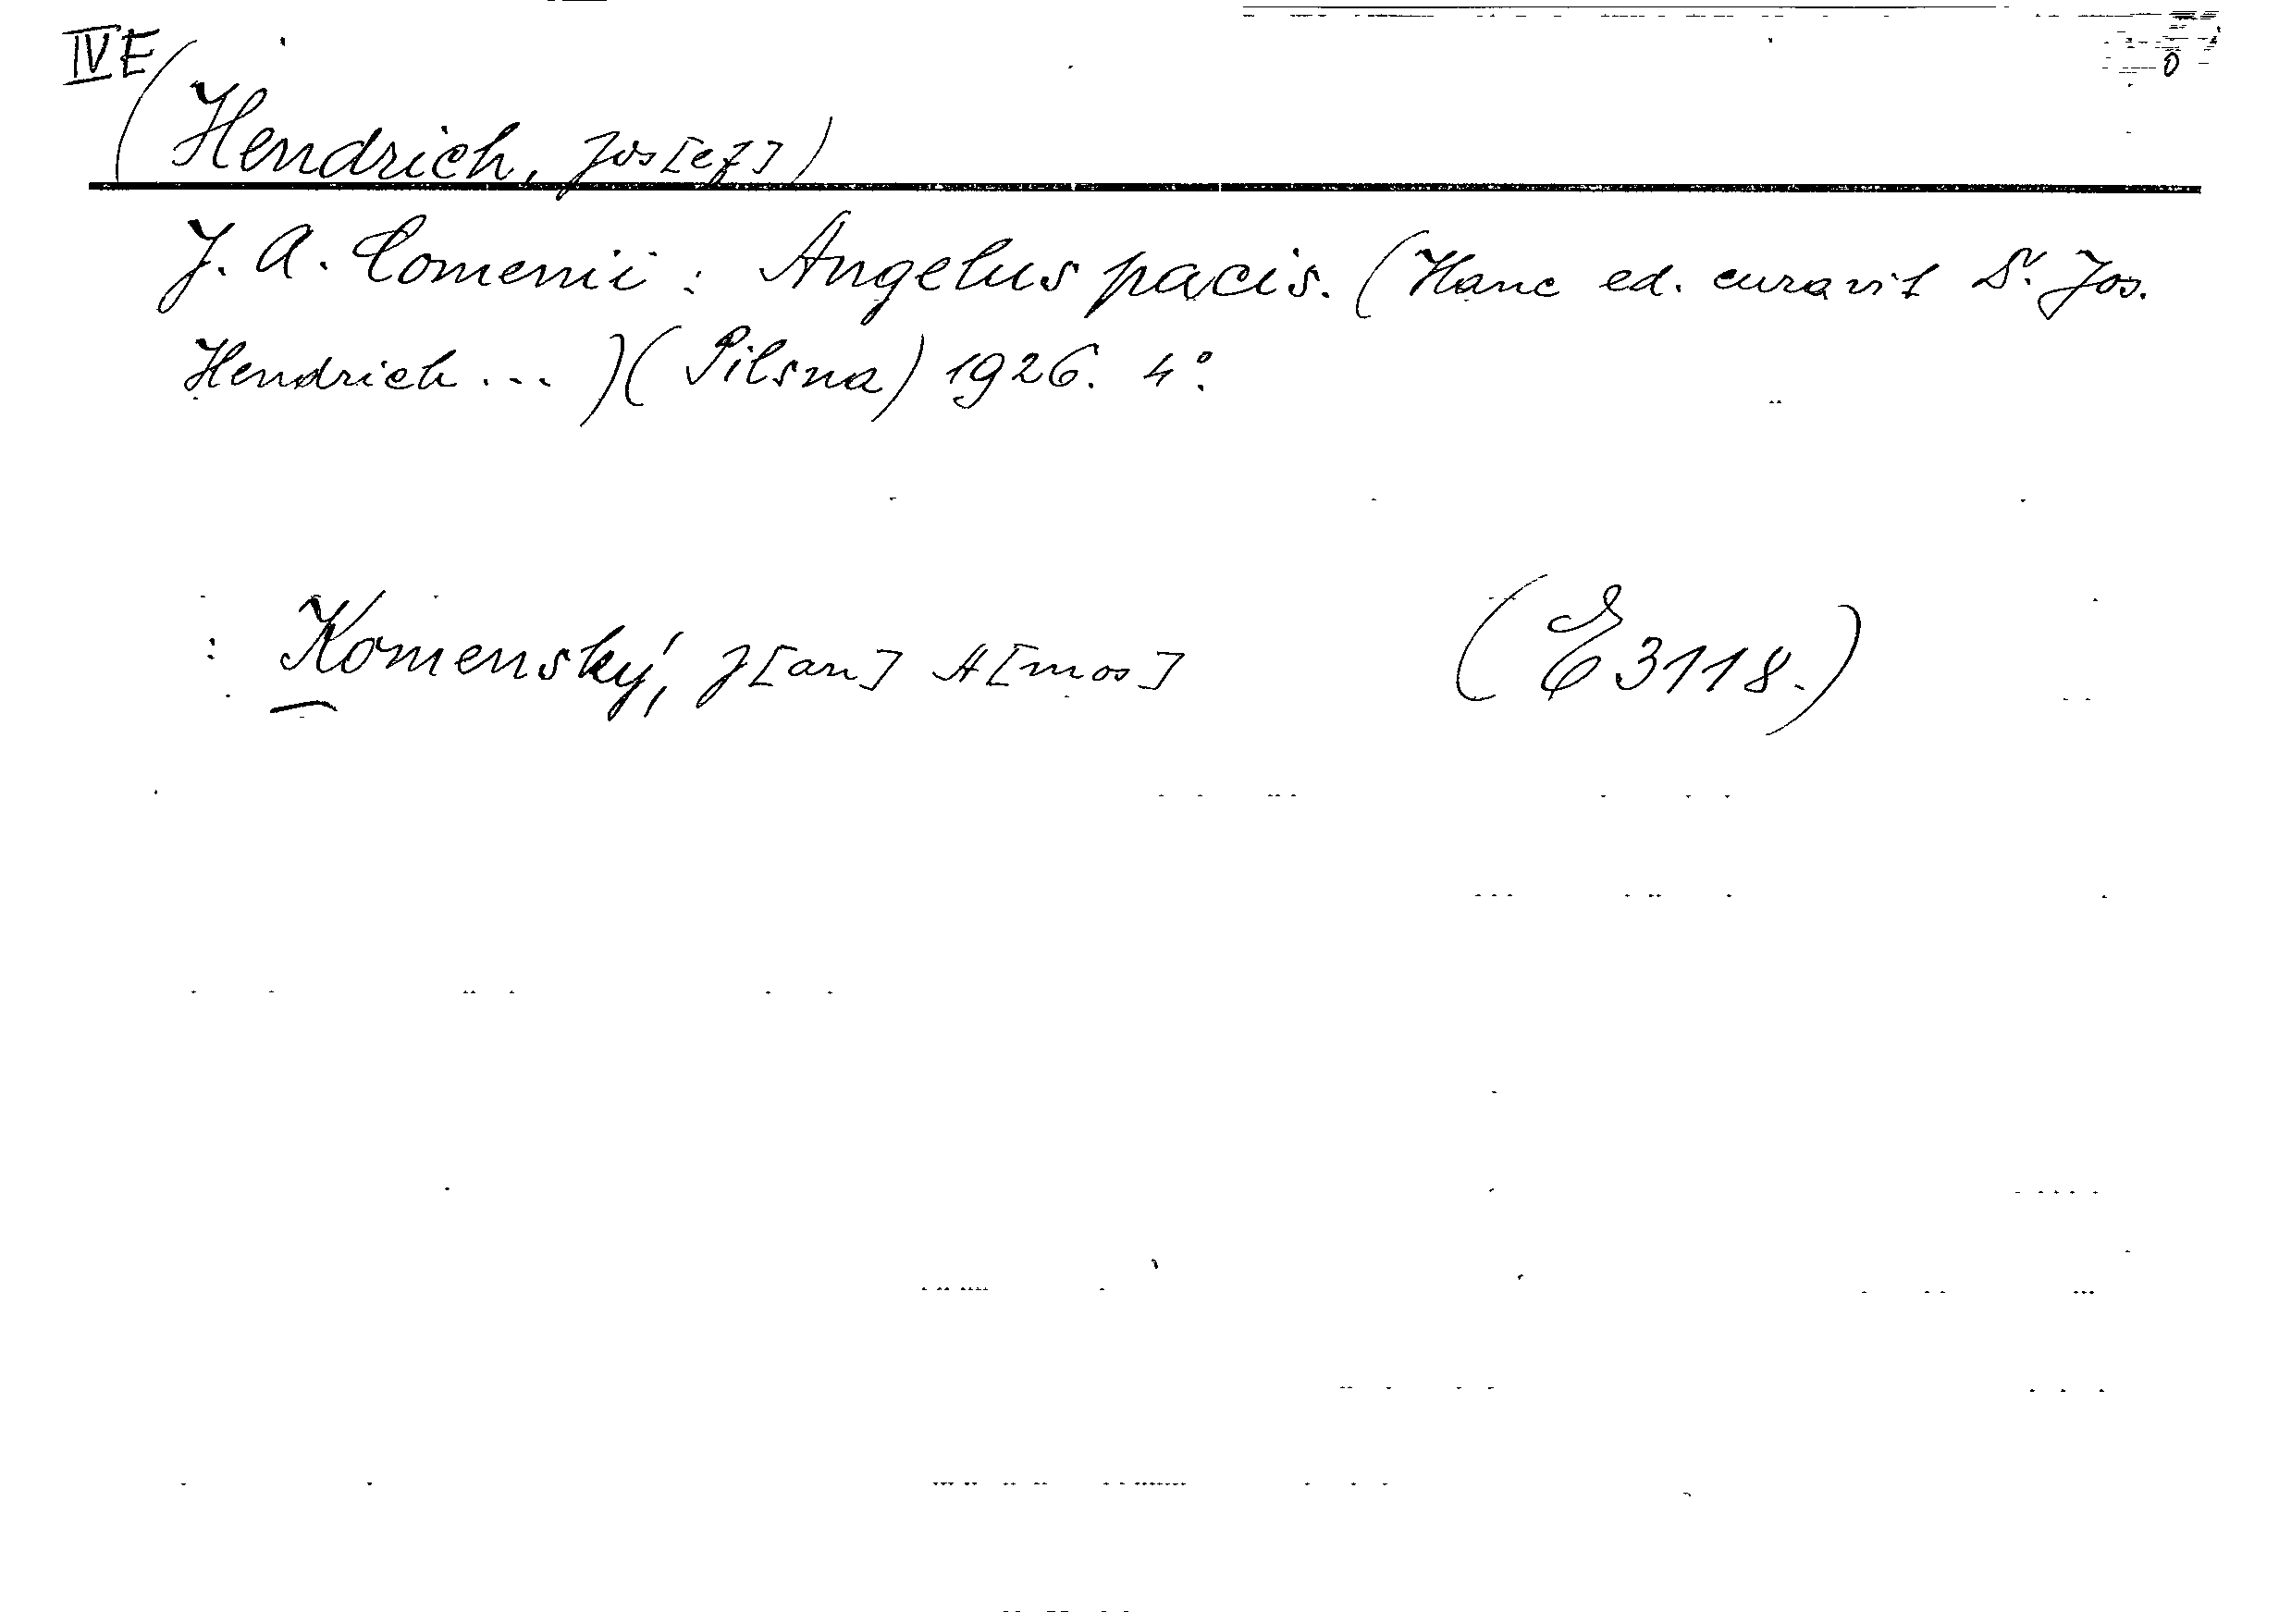 IVE
(Hendrich, Jos[ef])
J. A. Comenii: Angelus pacis. (Hanc ed. curavit Dr. Jos.
Hendrich ...) (Pilsna) 1926. 4°.
: Komenský, J[an] A[mos] (E 3118.)